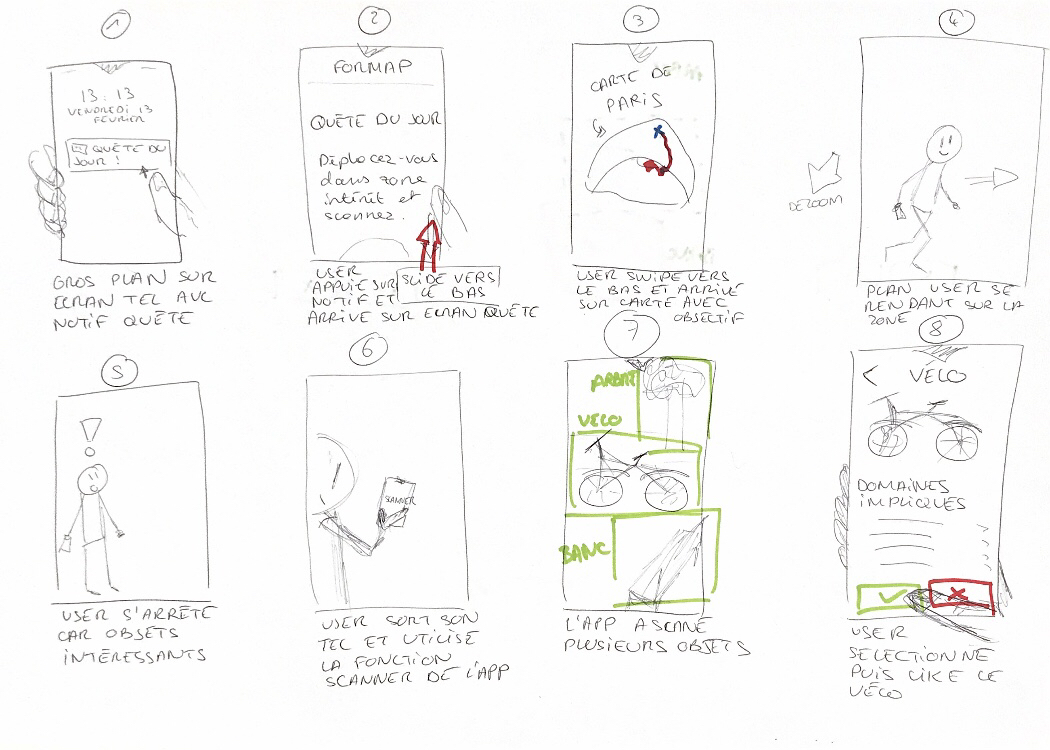 1
13:13
VENDREDI 13
FÉVRIER
QUÊTE DU
JOUR !
GROS PLAN SUR
ECRAN TEL AVC
NOTIF QUÊTE
2
FORMAP
QUÊTE DU JOUR
Déplacez-vous
dans zone
intérêt et
scannez.
USER
APPUIE SUR
NOTIF ET
ARRIVE SUR ECRAN QUÊTE
SLIDE VERS
LE BAS
3
CARTE DE
PARIS
USER SWIPE VERS
LE BAS ET ARRIVE
SUR CARTE AVEC
OBJECTIF
4
DEZOOM
PLAN USER SE
RENDANT SUR LA
ZONE
5
USER S'ARRÊTE
CAR OBJETS
INTÉRESSANTS
6
SCANNER
USER SORT SON
TEL ET UTILISE
LA FONCTION
SCANNER DE L'APP
7
ARBRE
VELO
BANC
L'APP A SCANÉ
PLUSIEURS OBJETS
8
< VELO
DOMAINES
IMPLIQUÉS
USER
SELECTIONNE
PUIS LIKE LE
VÉLO